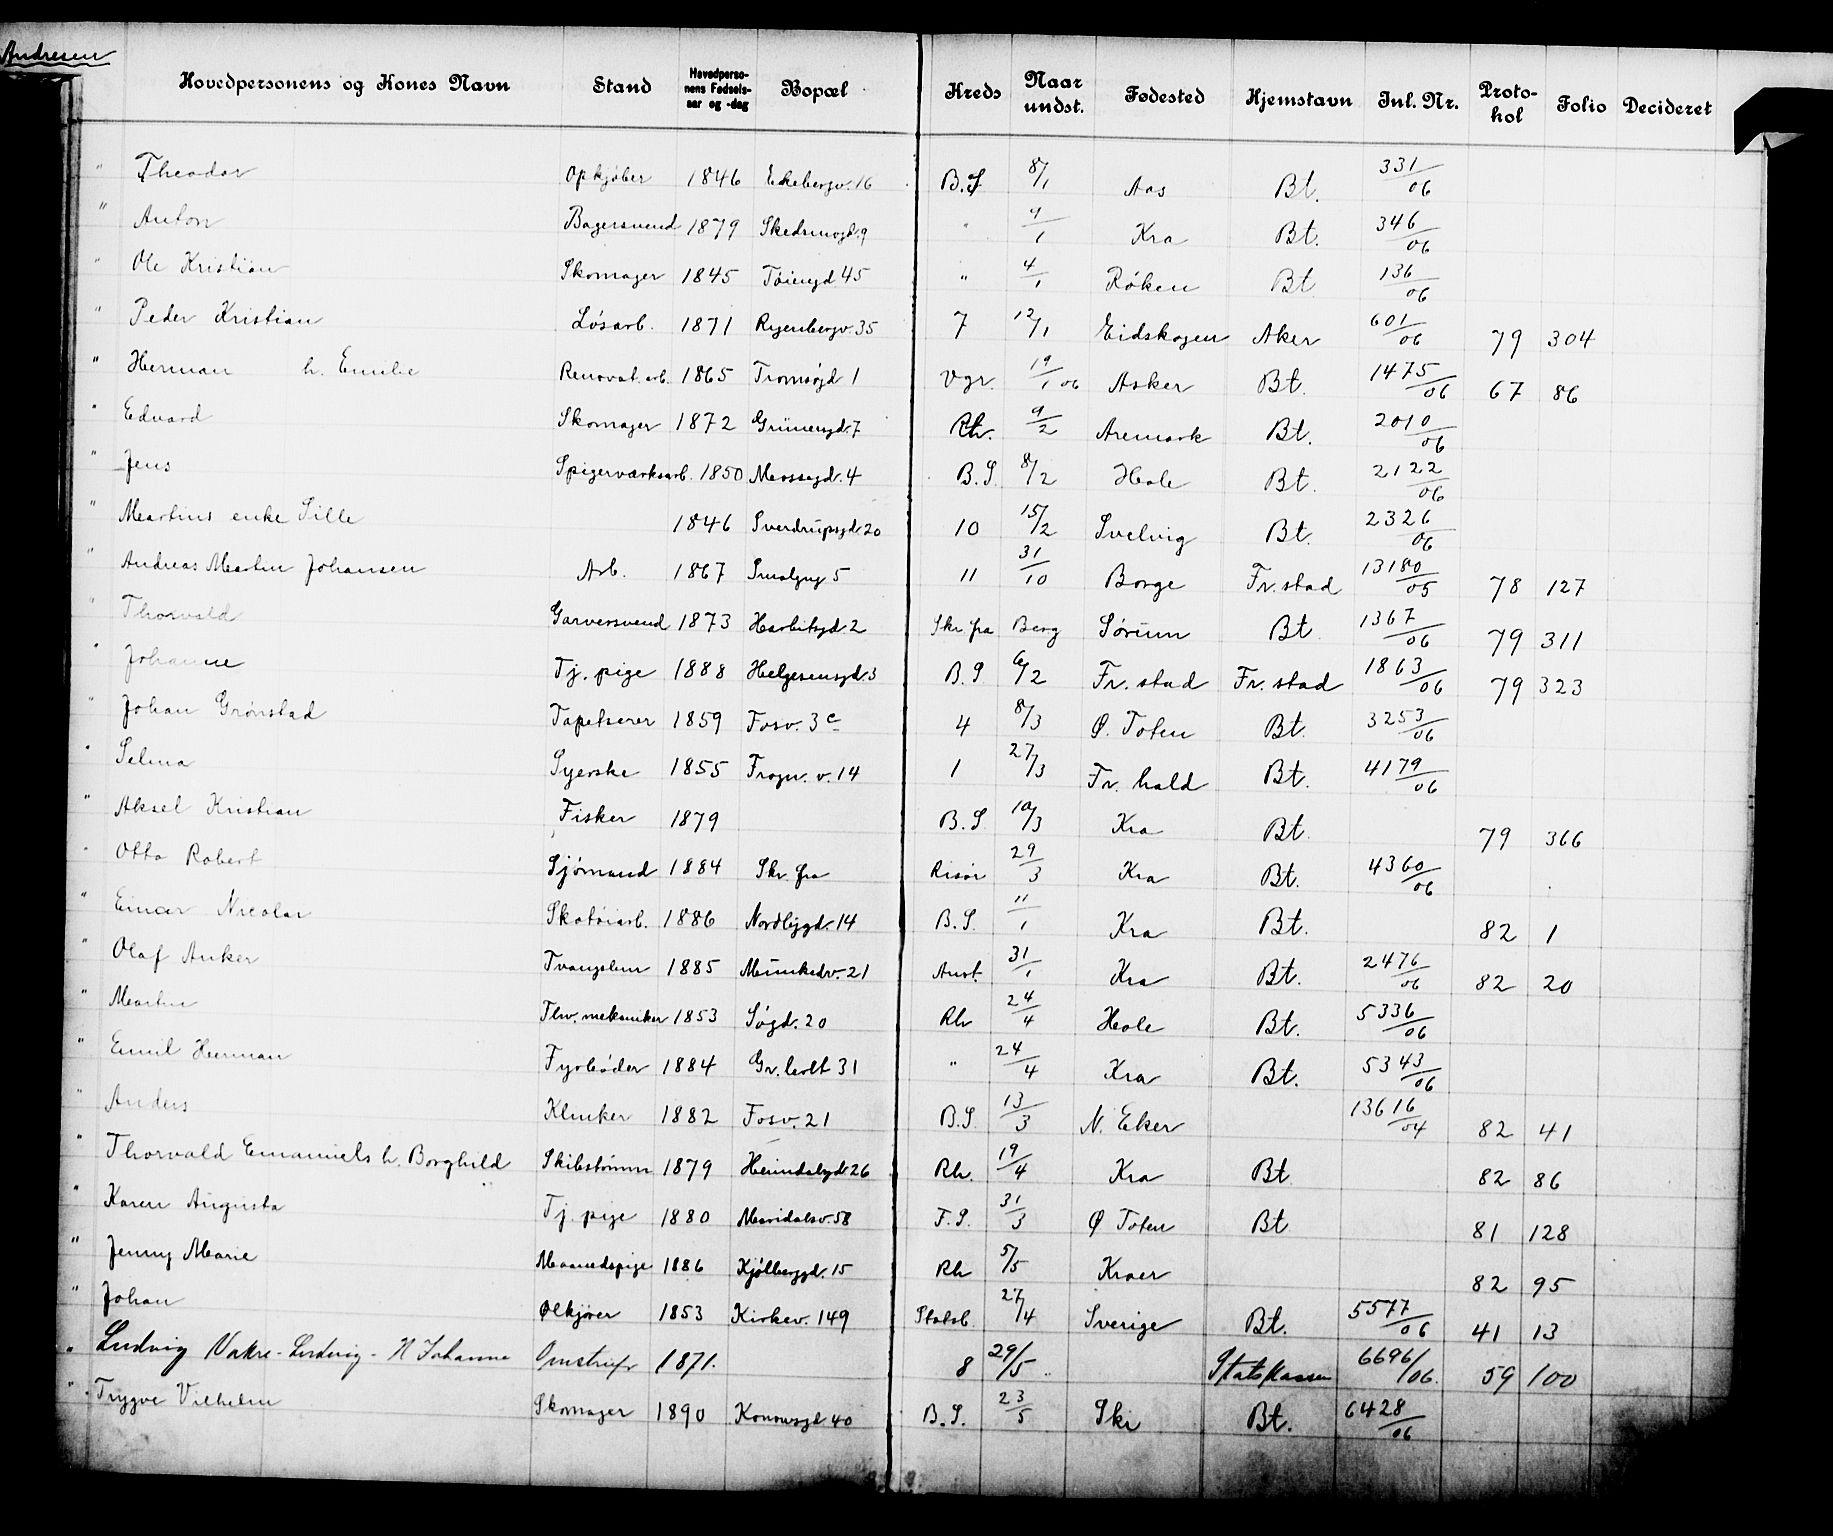 Andresen
Hovedpersonens og Kones Navn Stand Hovedperso-nens Fødsels-aar og -dag Bopæl Kreds Naar undst. Fødested Hjemstavn Inl. Nr. Proto-kol Folio Decideret
" Theodor Opkjøber 1846 Ekebergv. 16 B.S. 8/1 Aas Bt. 331/06
" Anton Bagersvend 1879 Skedsmogd. 9 " 9/1 Kra Bt. 346/06
" Ole Kristian Skomager 1845 Tøiengd 45 " 4/1 Røken Bt 136/06
" Peder Kristian Løsarb. 1871 Ryenbergv. 35 7 12/1 Eidskogen Aker 601/06 79 304
" Herman h. Emilie Renovat. arb. 1865 Tromsøgd 1 Vgr. 19/1 06 Asker Bt. 1475/06 67 86
" Edvard Skomager 1872 Grünersgd. 7 Rh. 9/2 Aremark Bt. 2010/06
" Jens Spigerværksarb. 1850 Mossegd. 4 B.S. 8/2 Hole Bt. 2122/06
" Martins enke Sille 1846 Sverdrupsgd 20 10 15/2 Svelvig Bt. 2326/06
" Andreas Martin Johansen Arb. 1867 Smalgng 5 11 31/10 Borge Fr. stad 13180/05 78 127
" Thorvald Garversvend 1873 Harbitzgd. 2 Skr. fra Berg Sørum Bt. 1367/06 79 311
" Johanne Tj. pige 1888 Helgesensgd. 3 B.S. 6/2 Fr. stad Fr. stad 1863/06 79 323
" Johan Grønstad Tapetserer 1859 Fosv. 3 c 4 8/3 Ø. Toten Bt. 3253/06
" Selma Syerske 1855 Frogn. v. 14 1 27/3 Fr. hald Bt. 4179/06
" Aksel Kristian Fisker 1879 B.S. 10/3 Kra Bt. 79 366
" Otto Robert Sjømand 1884 Skr. fra Risør 29/3 Kra Bt. 4360/06
" Einar Nicolai Skotøiarb. 1886 Nordbygd. 14 B.S. 11/1 Kra Bt. 82 1
" Olaf Anker Tvangslem 1885 Munkedv. 21 Anst. 31/1 Kra Bt. 2476/06 82 20
" Martin Thv. mekaniker 1853 Søgd. 20 Rh 24/4 Hole Bt. 5336/06
" Emil Herman Fyrbøder 1884 Gr. levlt 31 " 24/4 Kra Bt. 5343/06
" Anders Klinker 1882 Fosv. 21 B.S. 13/3 N. Eker 13616/04 82 41
" Thorvald Emanuels h. Borghild Skibstømm 1879 Heimdalsgd. 26 Rh. 19/4 Kra Bt 82 86
" Karen Augusta Tj. pige 1880 Maridalsv. 58 F.S. 31/3 Ø Toten Bt 81 128
" Jenny Marie Maanedspige 1886 Kjølberggd. 15 Rh 5/5 Kraer 82 95
" Johan Ølkjører 1853 Kirkev. 149 Statsb. 27/4 Sverige Bt. 5577/06 41 13
" Ludvig Vakre-Ludvig - H Johanne Omstreifr 1871. 8 29/5 Statskassen 6696/06. 59 100
" Trygve Vilhelm Skomager 1890 Konowsgd 40 B.S. 23/5 Ski Bt. 6428/06